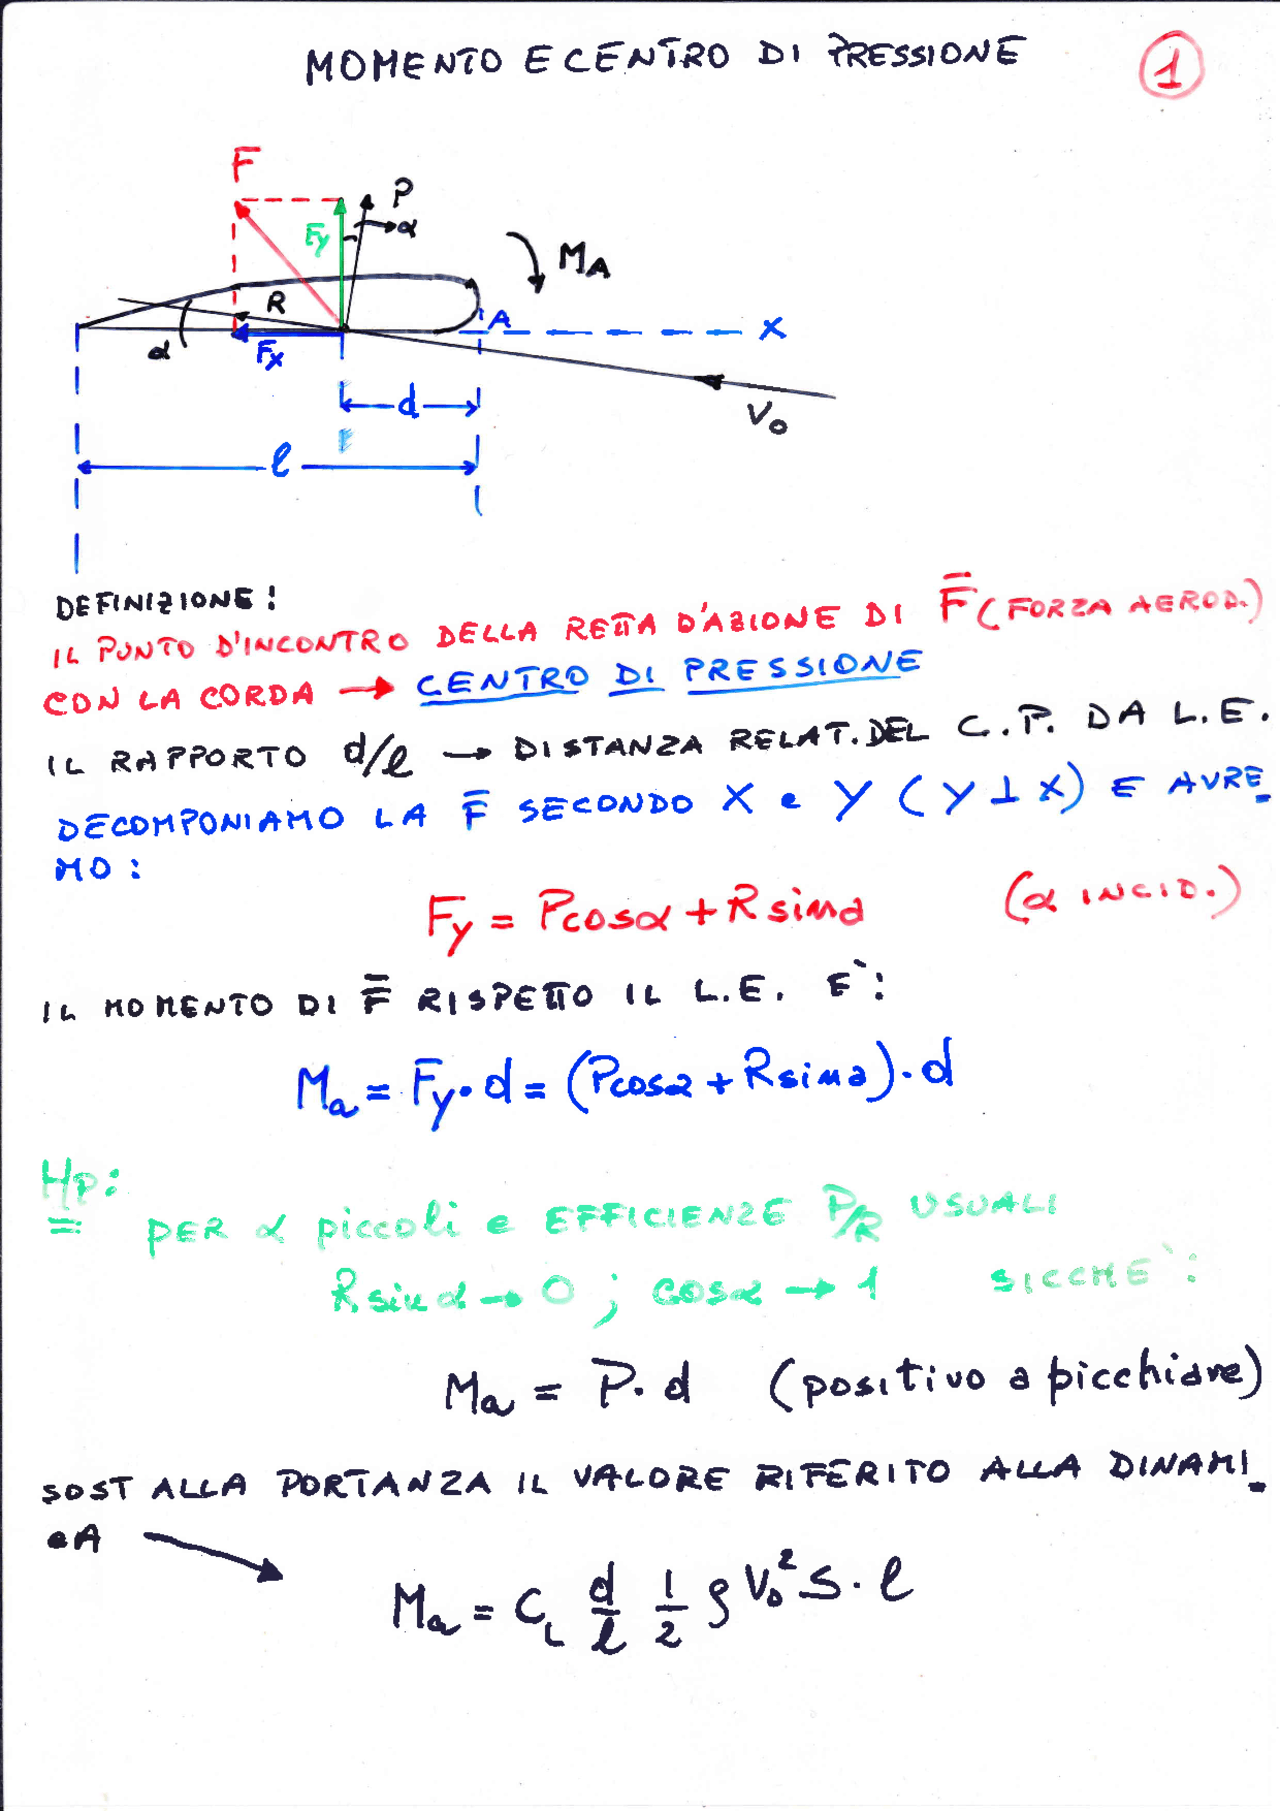 MOMENTO E CENTRO DI PRESSIONE
1
F
P
Fy
α
MA
R
A
X
α
Fx
d
V₀
l
DEFINIZIONE:
IL PUNTO D'INCONTRO DELLA RETTA D'AZIONE DI F̅ (FORZA AEROD.)
CON LA CORDA → CENTRO DI PRESSIONE
IL RAPPORTO d/l → DISTANZA RELAT. DEL C.P. DA L.E.
DECOMPONIAMO LA F̅ SECONDO X e Y (Y ⊥ X) E AVRE_
MO:
Fy = Pcosα + R sinα (α INCID.)
IL MOMENTO DI F̅ RISPETTO IL L.E. E`:
Ma = Fy · d = (Pcosα + R sinα) · d
Hp:
PER α piccoli e EFFICIENZE P/R USUALI
R sin α → 0 ; cosα → 1 SICCHE`:
Ma = P · d (positivo a picchiare)
SOST ALLA PORTANZA IL VALORE RIFERITO ALLA DINAMI_
CA
Ma = C_L d/l 1/2 ρ V₀² S · l